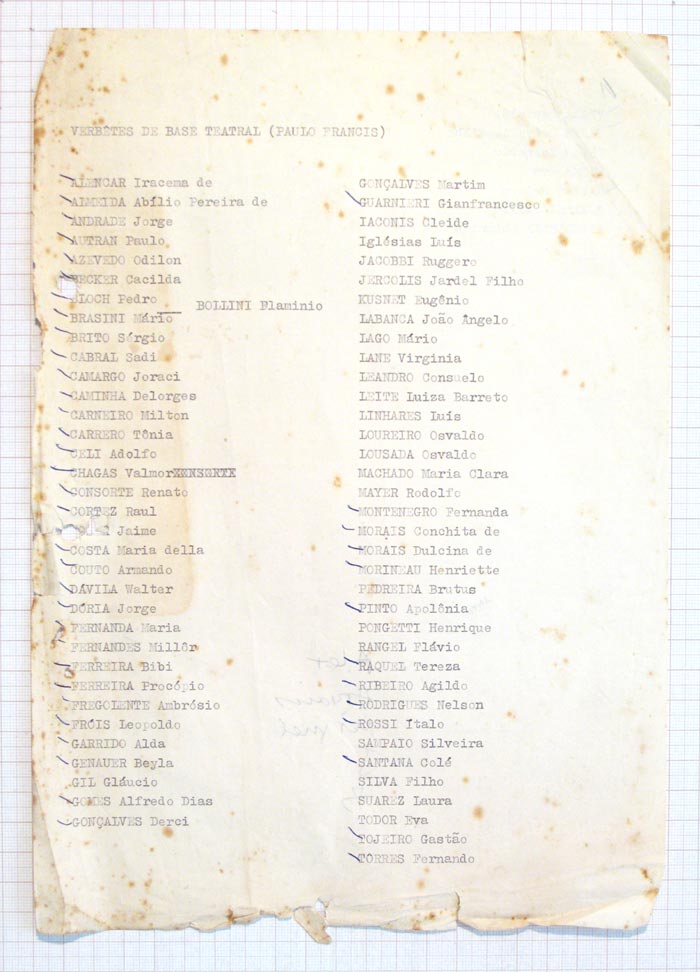 VERBÊTES DE BASE TEATRAL (PAULO FRANCIS)
ALENCAR Iracema de
ALMEIDA Abílio Pereira de
ANDRADE Jorge
AUTRAN Paulo
AZEVEDO Odilon
BECKER Cacilda
BLOCH Pedro
BOLLINI Flaminio
BRASINI Mário
BRITO Sérgio
CABRAL Sadi
CAMARGO Joraci
CAMINHA Delorges
CARNEIRO Milton
CARRERO Tônia
CELI Adolfo
CHAGAS Valmor
CONSORTE Renato
CORTEZ Raul
Jaime
COSTA Maria della
COUTO Armando
DÁVILA Walter
DÓRIA Jorge
FERNANDA Maria
FERNANDES Millôr
FERREIRA Bibi
FERREIRA Procópio
FREGOLENTE Ambrósio
FRÓIS Leopoldo
GARRIDO Alda
GENAUER Beyla
GIL Gláucio
GOMES Alfredo Dias
GONÇALVES Derci
GONÇALVES Martim
GUARNIERI Gianfrancesco
IACONIS Cleide
Iglésias Luís
JACOBBI Ruggero
JERCOLIS Jardel Filho
KUSNET Eugênio
LABANCA João Ângelo
LAGO Mário
LANE Virginia
LEANDRO Consuelo
LEITE Luiza Barreto
LINHARES Luis
LOUREIRO Osvaldo
LOUSADA Osvaldo
MACHADO Maria Clara
MAYER Rodolfo
MONTENEGRO Fernanda
MORAIS Conchita de
MORAIS Dulcina de
MORINEAU Henriette
PEDREIRA Brutus
PINTO Apolônia
PONGETTI Henrique
RANGEL Flávio
RAQUEL Tereza
RIBEIRO Agildo
RODRIGUES Nelson
ROSSI Ítalo
SAMPAIO Silveira
SANTANA Colé
SILVA Filho
SUAREZ Laura
TODOR Eva
TOJEIRO Gastão
TORRES Fernando